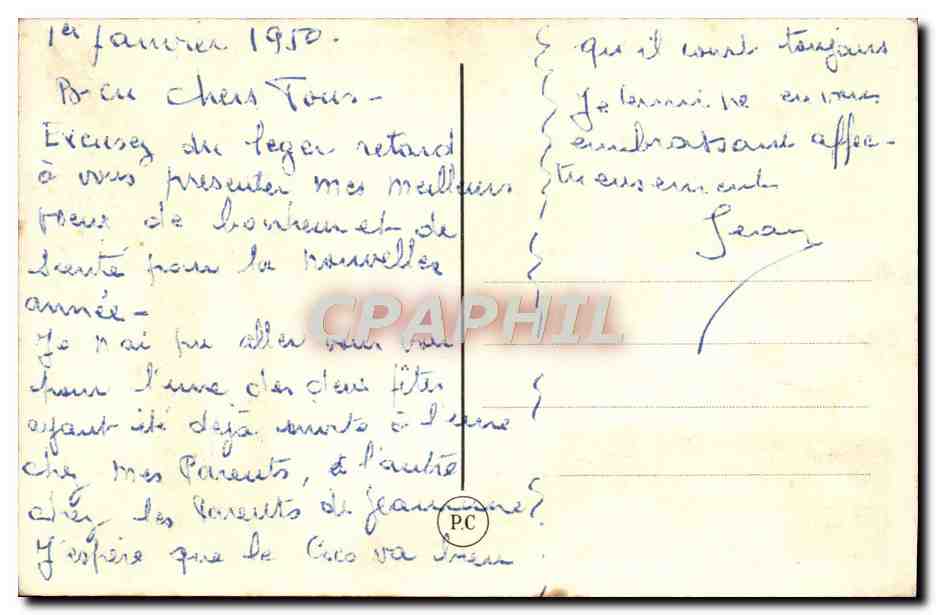 1er Janvier 1950.
Bien chers Tous -
Excusez du leger retard
à vous presenter mes meilleurs
voeux de bonheur et de
Santé pour la nouvelles
année -
Je n'ai pu aller vous voir
pour l'une des deux fêtes
ayant été déjà invité à l'une
chez mes Parents, à l'autre
chez les Parents de Jeannine
J'espère que le Coco va bien
qu'il court toujours
Je termine en vous
embrassant affec-
tueusement
Jean
CPAPHIL
P.C